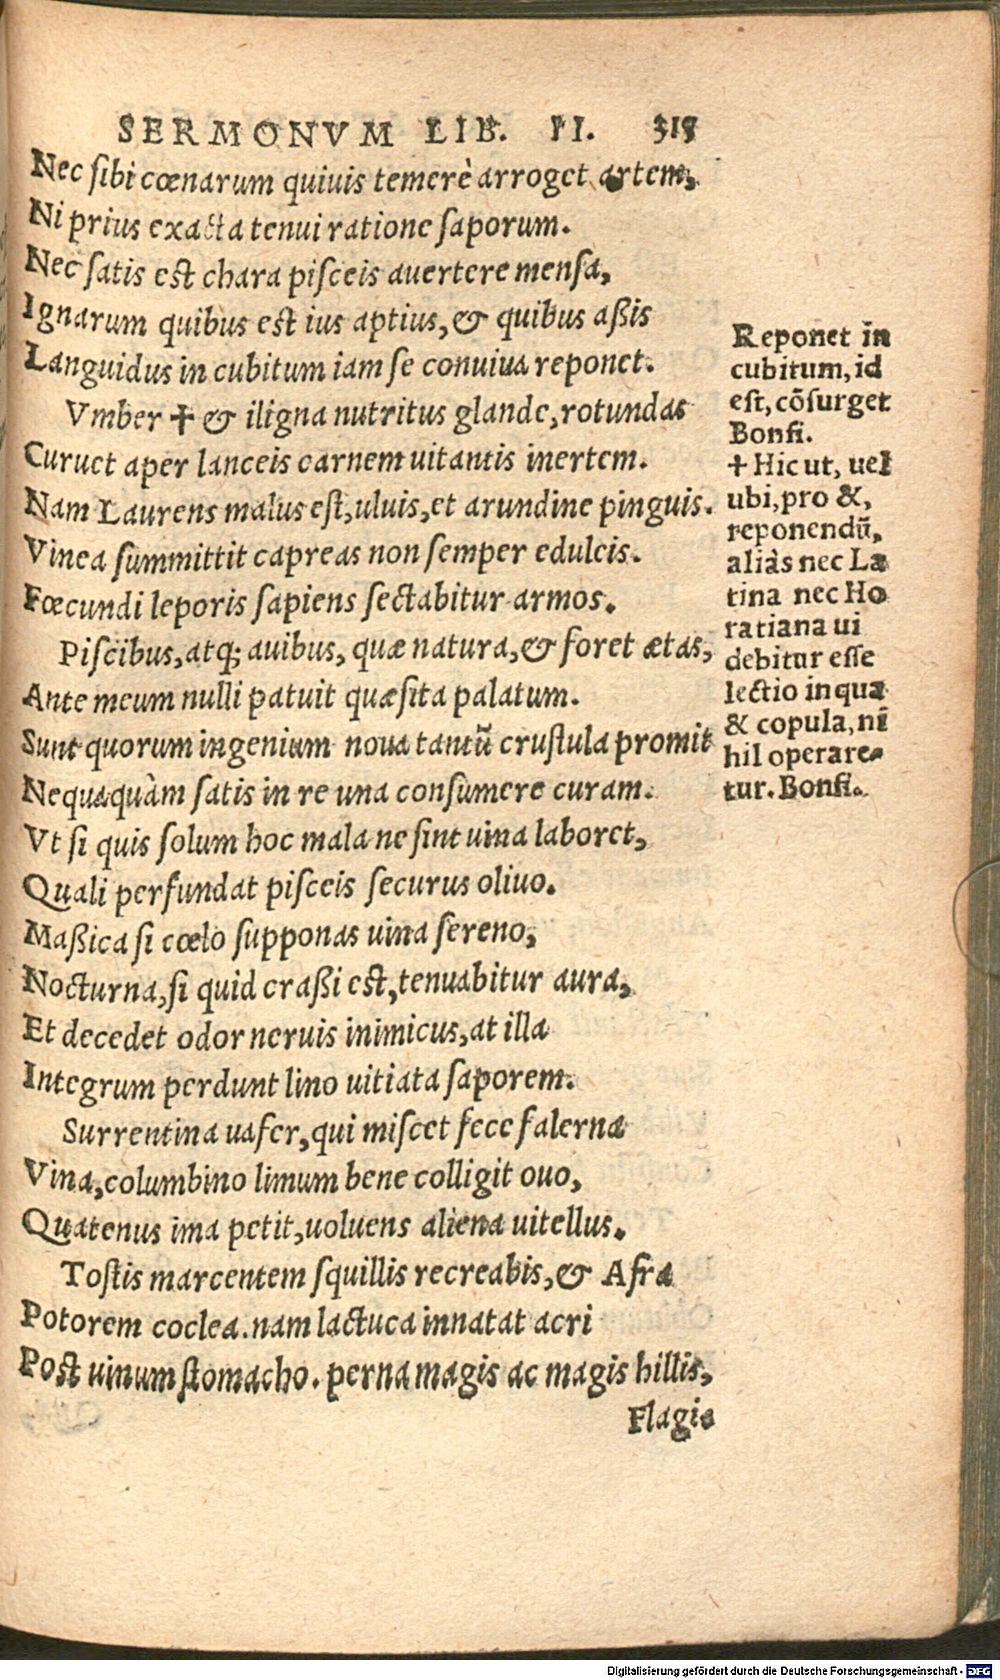 SERMONVM LIB. II. 315
Nec sibi cœnarum quiuis temerè arroget artem,
Ni prius exacta tenui ratione saporum.
Nec satis est chara pisceis auertere mensa,
Ignarum quibus est ius aptius, & quibus aßis
Languidus in cubitum iam se conuiua reponet.
Vmber ✝ & iligna nutritus glande, rotundas
Curuet aper lanceis carnem uitantis inertem.
Nam Laurens malus est, uluis, et arundine pinguis.
Vinea summittit capreas non semper eduleis.
Fœcundi leporis sapiens sectabitur armos.
Piscibus, atq; auibus, quæ natura, & foret ætas,
Ante meum nulli patuit quæsita palatum.
Sunt quorum ingenium noua tantũ crustula promit
Nequaquàm satis in re una consumere curam.
Vt si quis solum hoc mala ne sint uina laboret,
Quali perfundat pisceis securus oliuo.
Maßica si cœlo supponas uina sereno,
Nocturna, si quid craßi est, tenuabitur aura,
Et decedet odor neruis inimicus, at illa
Integrum perdunt lino uitiata saporem.
Surrentina uafer, qui miscet fece falerna
Vina, columbino limum bene colligit ouo,
Quatenus ima petit, uoluens aliena uitellus.
Tostis marcentem squillis recreabis, & Afra
Potorem coclea. nam lactuca innatat acri
Post uinum stomacho. perna magis ac magis hillis,
Flagi-
Reponet in
cubitum, id
est, cõsurget
Bonfi.
✝ Hic ut, uel
ubi, pro &,
reponendũ,
aliàs nec La
tina nec Ho
ratiana ui
debitur esse
lectio in qua
& copula, ni
hil operare-
tur. Bonfi.
Digitalisierung gefördert durch die Deutsche Forschungsgemeinschaft - DFG